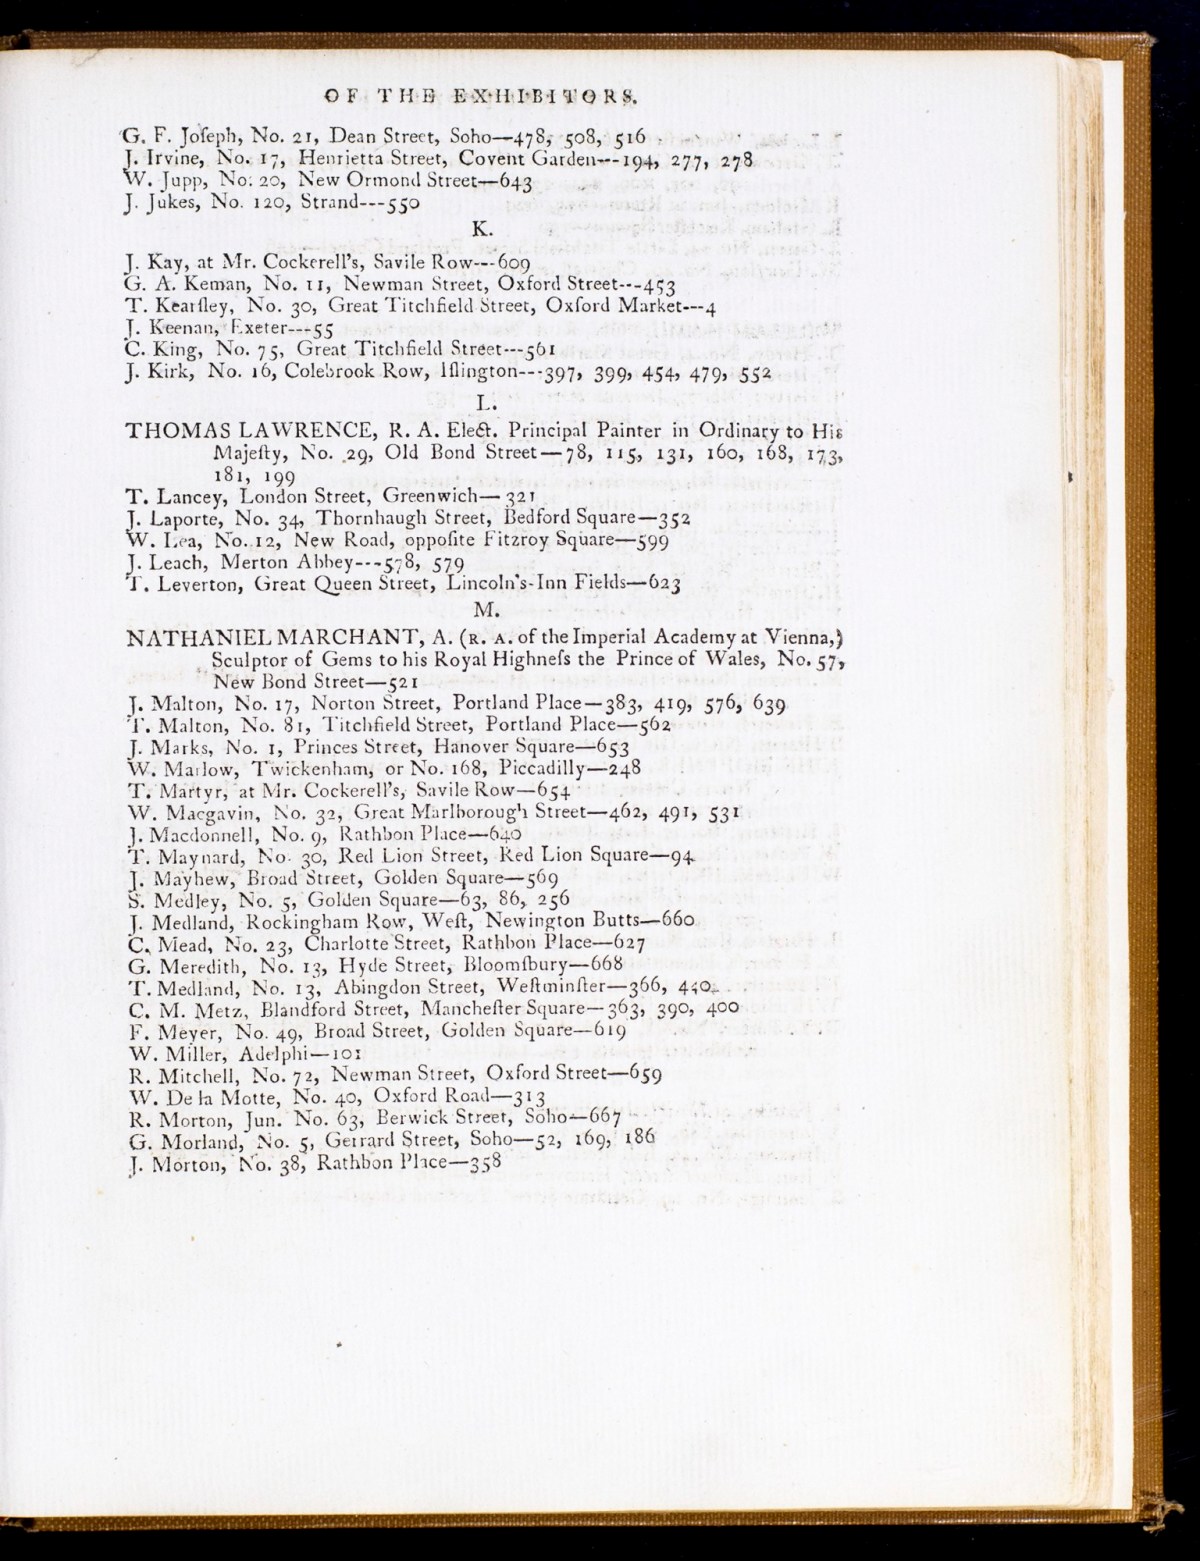 OF THE EXHIBITORS.
G. F. Joſeph, No. 21, Dean Street, Soho—478, 508, 516
J. Irvine, No. 17, Henrietta Street, Covent Garden---194, 277, 278
W. Jupp, No. 20, New Ormond Street—643
J. Jukes, No. 120, Strand---550
K.
J. Kay, at Mr. Cockerell's, Savile Row---609
G. A. Keman, No. 11, Newman Street, Oxford Street---453
T. Kearſley, No. 30, Great Titchfield Street, Oxford Market---4
J. Keenan, Exeter---55
C. King, No. 75, Great Titchfield Street---561
J. Kirk, No. 16, Colebrook Row, Iſlington---397, 399, 454, 479, 552
L.
THOMAS LAWRENCE, R. A. Elect. Principal Painter in Ordinary to His
Majeſty, No. 29, Old Bond Street—78, 115, 131, 160, 168, 173,
181, 199
T. Lancey, London Street, Greenwich—321
J. Laporte, No. 34, Thornhaugh Street, Bedford Square—352
W. Lea, No. 12, New Road, oppoſite Fitzroy Square—599
J. Leach, Merton Abbey---578, 579
T. Leverton, Great Queen Street, Lincoln's-Inn Fields—623
M.
NATHANIEL MARCHANT, A. (R. A. of the Imperial Academy at Vienna,)
Sculptor of Gems to his Royal Highneſs the Prince of Wales, No. 57,
New Bond Street—521
J. Malton, No. 17, Norton Street, Portland Place—383, 419, 576, 639
T. Malton, No. 81, Titchfield Street, Portland Place—562
J. Marks, No. 1, Princes Street, Hanover Square—653
W. Marlow, Twickenham, or No. 168, Piccadilly—248
T. Martyr, at Mr. Cockerell's, Savile Row—654
W. Macgavin, No. 32, Great Marlborough Street—462, 491, 531
J. Macdonnell, No. 9, Rathbon Place—640
T. Maynard, No. 30, Red Lion Street, Red Lion Square—94
J. Mayhew, Broad Street, Golden Square—569
S. Medley, No. 5, Golden Square—63, 86, 256
J. Medland, Rockingham Row, Weſt, Newington Butts—660
C. Mead, No. 23, Charlotte Street, Rathbon Place—627
G. Meredith, No. 13, Hyde Street, Bloomſbury—668
T. Medland, No. 13, Abingdon Street, Weſtminſter—366,
C. M. Metz, Blandford Street, Mancheſter Square—363, 390, 400
F. Meyer, No. 49, Broad Street, Golden Square—619
W. Miller, Adelphi—101
R. Mitchell, No. 72, Newman Street, Oxford Street—659
W. De la Motte, No. 40, Oxford Road—313
R. Morton, Jun. No. 63, Berwick Street, Soho—667
G. Morland, No. 5, Gerrard Street, Soho—52, 169, 186
J. Morton, No. 38, Rathbon Place—358